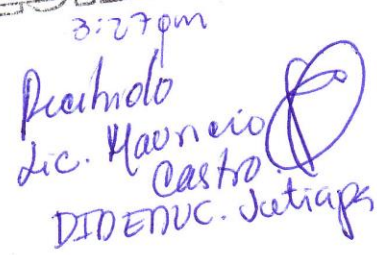 3:27pm
Recibido
Lic. Mauricio
Castro.
DIDEDUC. Jutiapa